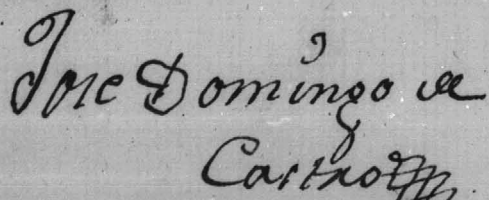 Jose Domingo de
Castro